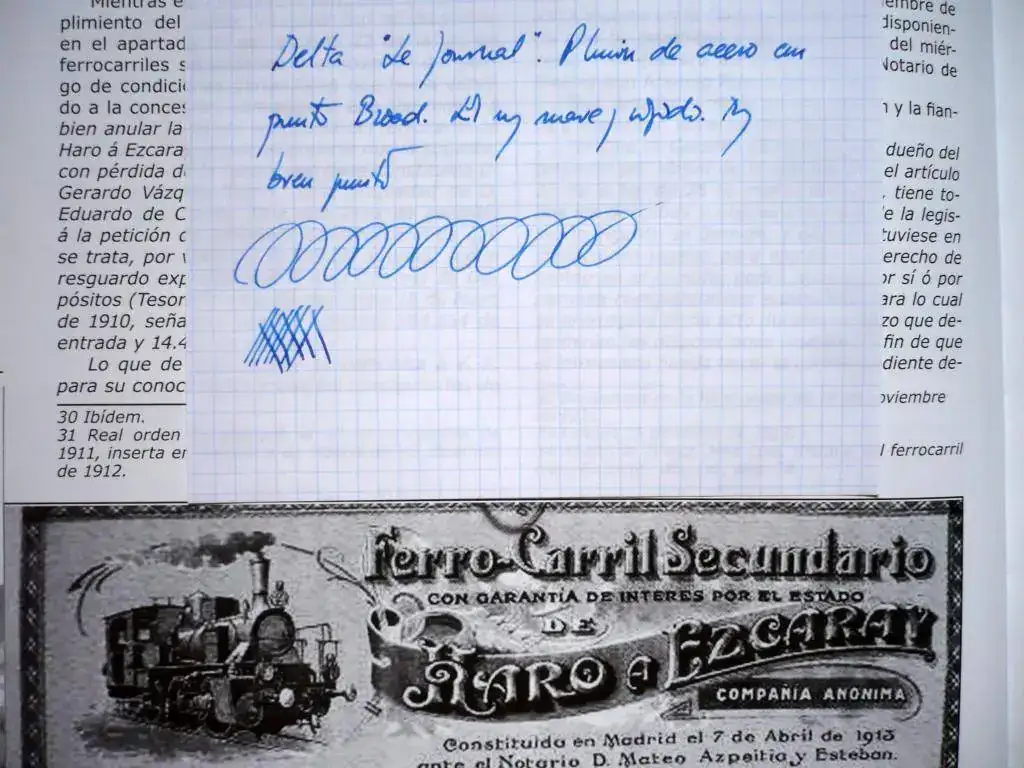 Mientras e
plimiento del
en el apartad
ferrocarriles s
go de condici
do a la conces
bien anular la
Haro á Ezcara
con pérdida d
Gerardo Vázq
Eduardo de C
á la petición
se trata, por v
resguardo exp
pósitos (Tesor
de 1910, seña
entrada y 14.4
Lo que de
para su conoc
30 Ibídem.
31 Real orden
1911, inserta en
de 1912.
Delta "Le Journal". Plumín de acero con
punto Broad. Es muy suave y rápido. Muy
buen punto
iembre de
disponien-
del miér-
Notario de
n y la fian-
dueño del
el artículo
, tiene to-
e la legis-
tuviese en
erecho de
or sí ó por
ara lo cual
zo que de-
fin de que
diente de-
oviembre
l ferrocarril
Ferro-Carril Secundario
CON GARANTÍA DE INTERES POR EL ESTADO
DE
HARO A EZCARAY
COMPAÑÍA ANONIMA
Constituida en Madrid el 7 de Abril de 1913
ante el Notario D. Mateo Azpeitia y Esteban.